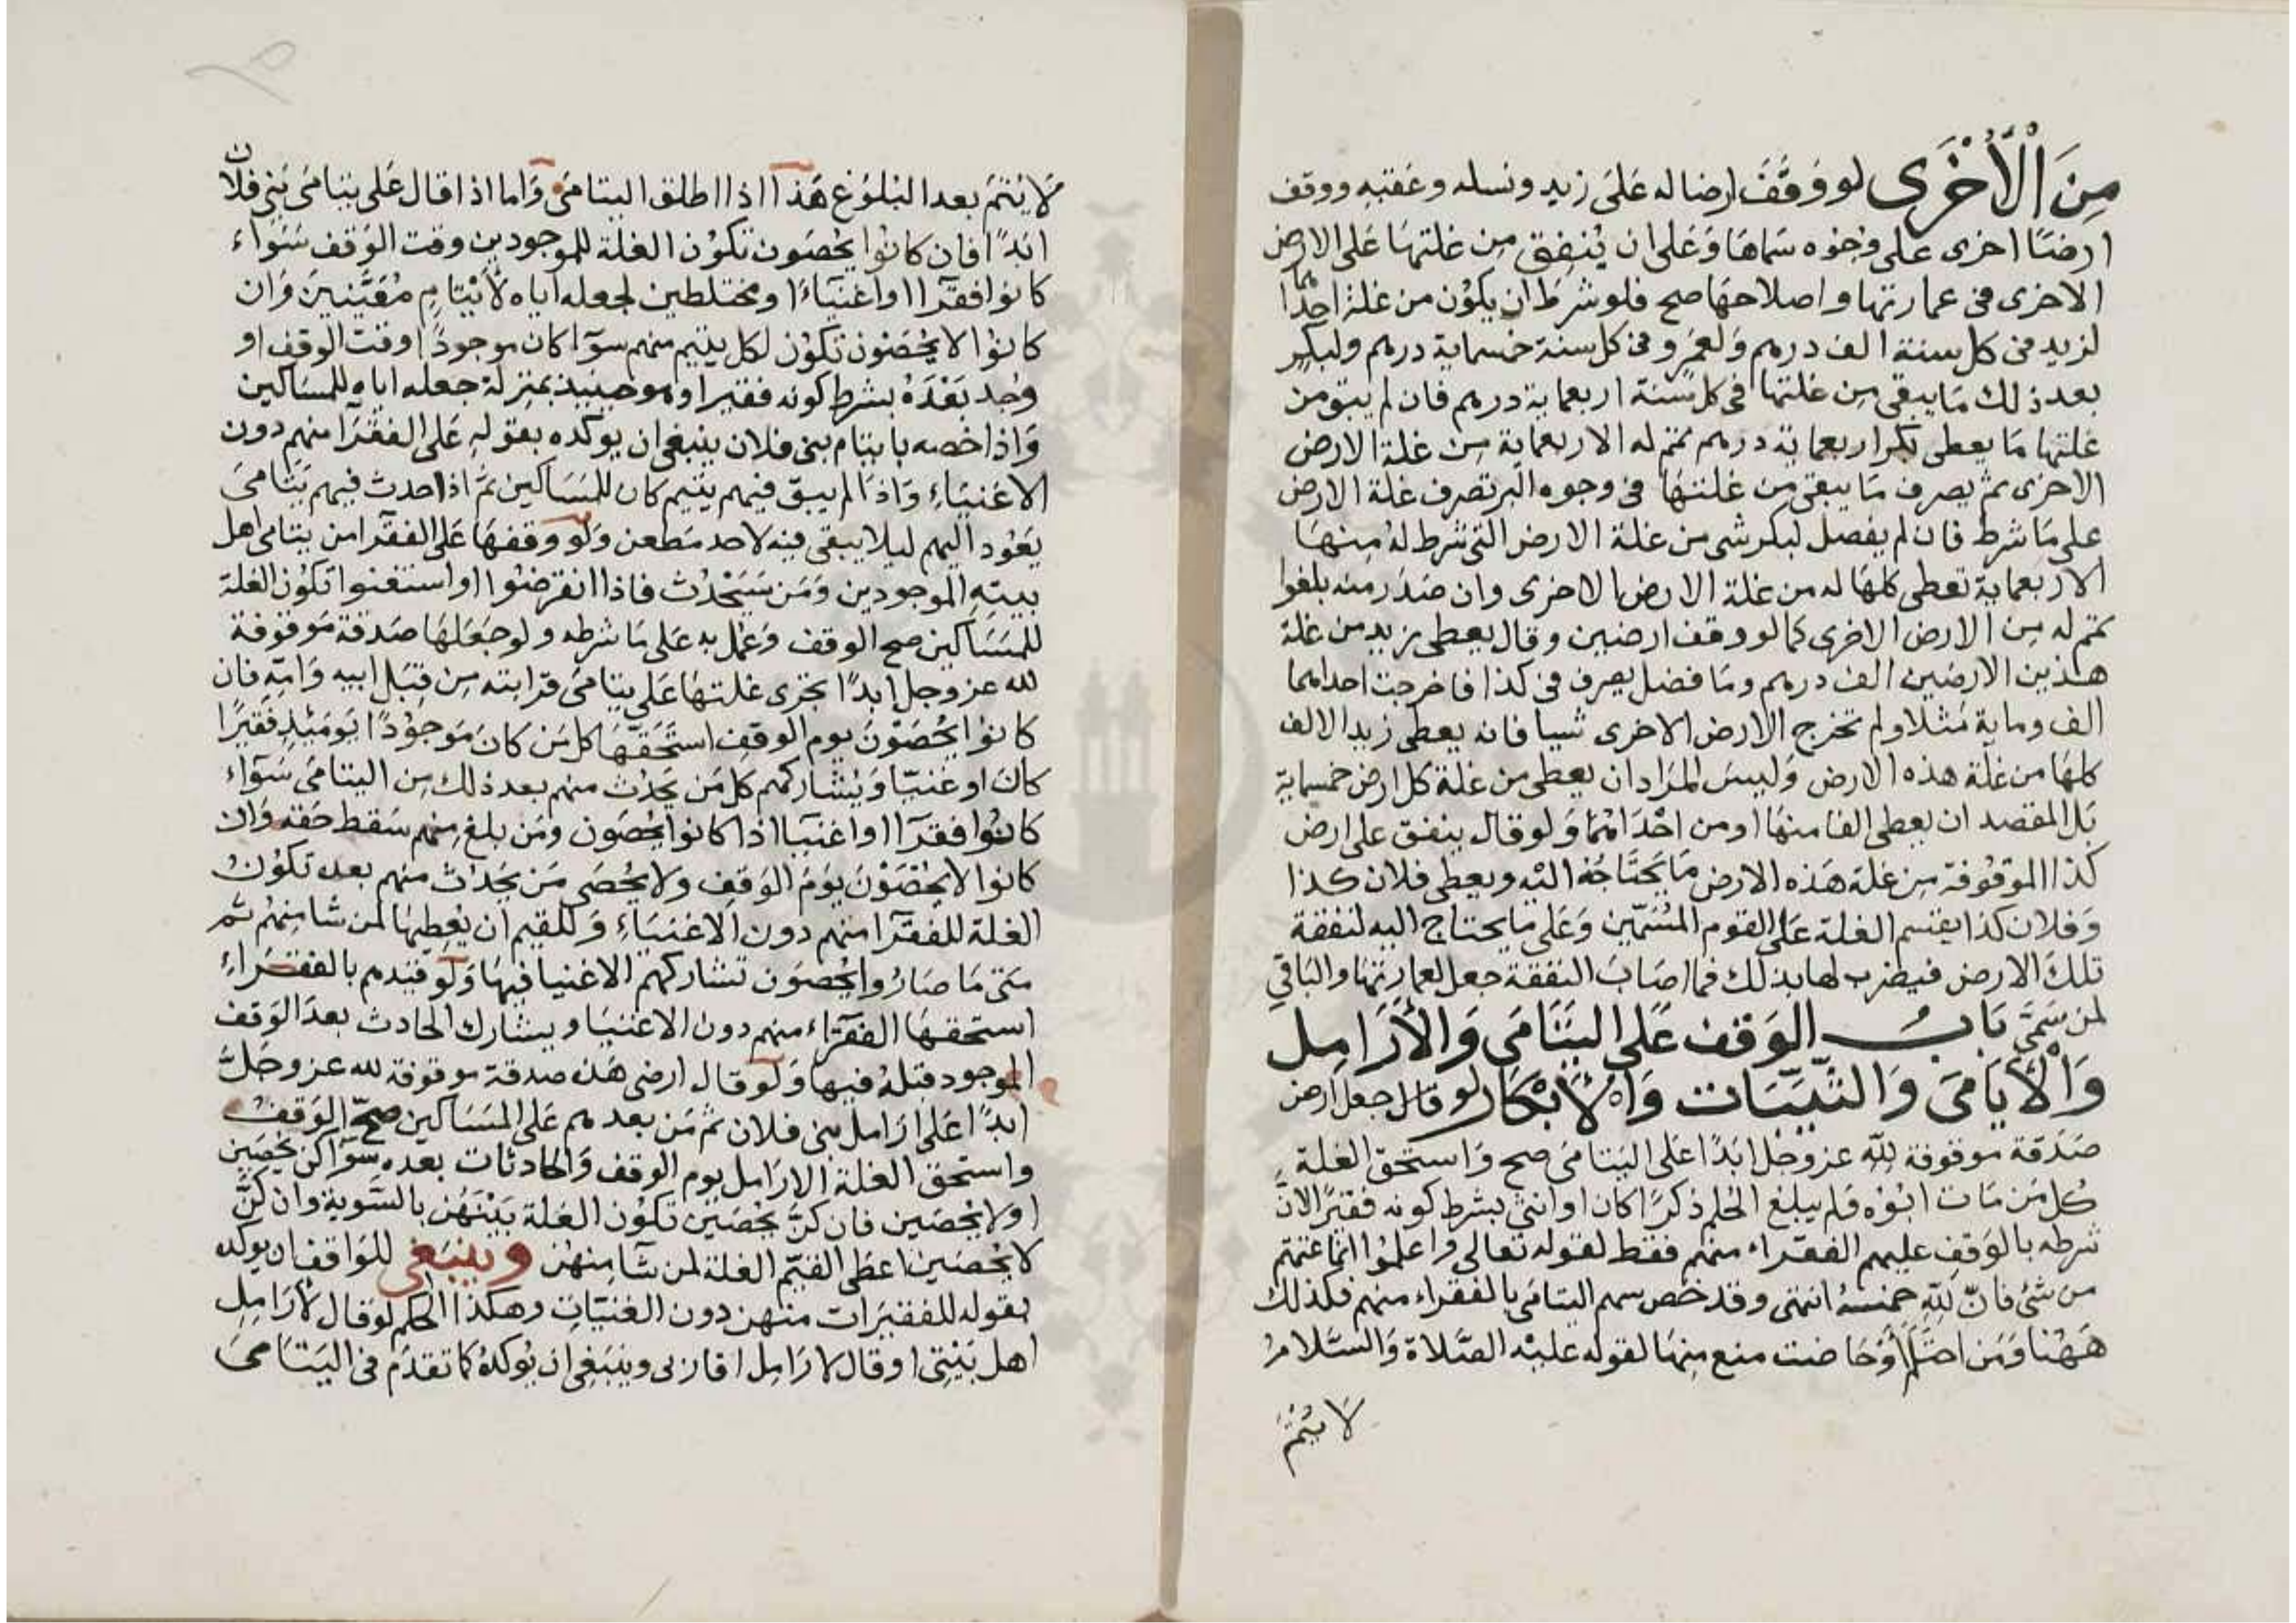 مِنَ الْأُخْرَى لو وَقَفَ ارضا له عَلَى زيد ونسله وعَقبِهِ ووقف
ارضًا اخرى على وجُوه سَمَاهَا وَعَلى ان يُنفِق مِن غلتهَا عَلى الارض
الاخرى فى عمارتها واصلاحهَا صح فلو شرطَ ان يكوُن من غلة احِدَاهما
لزيد فى كل سنة الف درهم وَلعَمرو فى كل سنة خمسماية درهم ولبكر
بعد ذلك مَا يبقى مِن غلتها فى كل سَنة اربعماية درهم فان لم يبق من
غلتها مَا يعطى بكرا اربعماية درهم تمم له الاربعماية مِن غلة الارض
الاخرى ثم يصرف مَا يبقى مِن غلتهَا فى وجوه البر تصرف غلة الارض
على مَا شرط فان لم يفضل لبكر شى من غلة الارض التى شرط لهُ مِنهَا
الاربعماية تعطى كلهَا له من غلة الارض الاخرى وان صَدَر منه بلغوا
تمم له مِن الارض الاخرى كما لو وقف ارضين وقال يعطى زيد من غلة
هذين الارضين الف درهم ومَا فضل يصرف فى كذا فاخرجت احداهما
الف وماية مَثلا ولم تخرج الارض الاخرى شيا فانه يعطى زيد الالف
كلهَا من غلة هذه الارض وَليسَ المرَاد ان يعطى من غلة كل ارض خمسماية
بَل المقصد ان يعطى الفا منهَا او من احْدَاهُمَا وَلو قال ينفق على ارض
كذا الموقوُفة مِن غلة هَذه الارض مَا يَحتَاجُهُ اليْه ويعطى فلان كذا
وَفلان كذا يقتسم الغلة عَلى القوم المُسَمّين وَعَلى مَا يحتاج اليه لنفقة
تلكَ الارض فيضرب لها بذلك فما اصَابَ النفقة جعل لعمارتهَا والبَاقى
لمن سَمّىَ بَابُ الوَقف عَلَى اليَتَامَى وَالأرَامِل
وَالْأيَامَى وَالثّيّبَات وَالْأبْكَار لو قال جعل ارضى
صَدَقة موقوفة لِلّه عز وجل ابَدًا عَلى اليَتامَى صح وَاستحق الغلة
كُل مَن مَات ابُوُه وَلم يبلغ الحُلم ذكرًا كان او انثى بشرط كونه فقيرًا لانّ
شرطه بالوَقفِ عليهم الفقرَاء منهم فقط لقوله تعالى وَاعلمُوا انّمَا غنمتم
من شئ فانّ لِلّهِ خمسهُ انتهى وقد خص سهم اليتامَى بالفقراء منهم فكذلك
هَهُنا وَمَن احتَلَمَ اَوْ حَاضت منع مِنهَا لقوله عليْه الصَّلاة وَالسَّلامُ
لَا يُتْمَ
لَا يُتمَ بعد البُلوُغ هَذا اذا اطلق اليتامَى وَاما اذا قال عَلى يتامَى بَنى فلان
ابَدًا فان كانُوا يحُصَون تكوُن الغلة للموجودين وقت الوَقف سَوَاء
كانوا فقَرَآ او اغنيَاءا او مختلطين لجعله اياه لأيْتامٍ مُعَيّنينَ وَان
كانوُا لا يُحْصَوْن تكوُن لكل يتيم منهم سوَآ كان موجودًا وقت الوقفِ او
وجُد بَعْدَهُ بشرط كونه فقيرا وهو حينيذ بمنزلة جعله اياه للمسَاكين
وَاذا خصه بايتام بنى فلان ينبغى ان يوكده بقوله عَلى الفقرَآ منهم دون
الاغنيَاءِ وَاذا لم يبق فيهم يتيم كان للمسَاكين ثمَّ اذا حدث فيهم يَتامَى
يَعُود اليهم ليلا يبقى فيه لاحد مَطعن وَلو وقفهَا عَلى الفقرَآ من يتامى اهل
بيته الموجودين وَمَن سَيَحْدُث فاذا انقرضوُا او استغنوا تكوُن الغلة
للمسَاكين صح الوقف وَعمل به عَلى مَا شرطه ولو جَعَلهَا صَدقة مَوقوفة
لله عز وجل ابدًا تجْرى غلتهَا عَلى يتامَى قرَابته مِن قبَل ابيه وَامّه فان
كانوُا يُحْصَوْنَ يوم الوقفِ استَحَقهَا كل مَن كانَ مَوجوُدًا يَومَئِذٍ فَقِيرًا
كانَ او غنيّا وَيُشاركهم كل مَن يَحدُث منهم بعد ذلك مِن اليتامَى سَوَاء
كانُوا فقرَآ او اغنيَا اذا كانوا يُحصَون ومَن بلغ مِنهم سَقط حَقه وَان
كانوا لا يُحْصَوْنَ يَومُ الوَقفِ وَلا يحُصَى مَن يَحدُث منهم بعد تكوُن
الغلة للفقرَآ منهم دون الاغنيَاءِ وَللقيم ان يُعْطيهَا لمن شا منهُم ثم
مَتى مَا صَارُوا يُحْصَون تشاركهم الاغنيا فيهَا وَلو قيّدهم بالفقرَاءِ
استحقهَا الفقرَاء منهم دون الاغنيَا ويشارك الحادث بعدَ الوَقف
الموجود قبْلهُ فيها وَلو قال ارضى هَذه صدقة موقوفة لله عز وجَلّ
ابدًا عَلى ارَامل بنى فلان ثم مَن بعدهم عَلى المسَاكين صحّ الوَقف
واستحق الغلة الارَامل يوم الوقف وَالحادثات بعده سَوَآ كن يُحْصَين
او لا يُحْصَين فان كنّ يُحْصَيْنَ تكوُن الغَلة بَيْنَهُن بالسَّوية وان كُنَّ
لا يُحْصَين اعطى القيّم الغلة لمن شآ مِنهُن وينبَغى للوَاقف ان يوكده
بقوله للفقيَرات منهن دون الغنيّاتِ وهكذا الحكم لو قال لأرَامِل
اهل بَيْتِى او قال لارَامِل اقاربى وينبَغِى ان يُوكدهُ كما تقدَم فى اليَتَامَىَ